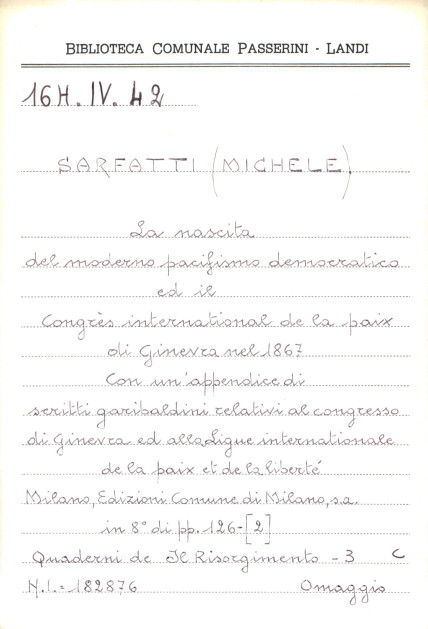 BIBLIOTECA COMUNALE PASSERINI - LANDI
16H. IV. 42
SARFATTI (MICHELE)
La nascita
del moderno pacifismo democratico
ed il
Congrès international de la paix
di Ginevra nel 1867
Con un'appendice di
scritti garibaldini relativi al congresso
di Ginevra ed alla Ligue internationale
de la paix et de la liberté
Milano, Edizioni Comune di Milano, s.a.
in 8° di pp. 126-[2]
Quaderni de Il Risorgimento - 3 C
N.I.= 182876 Omaggio